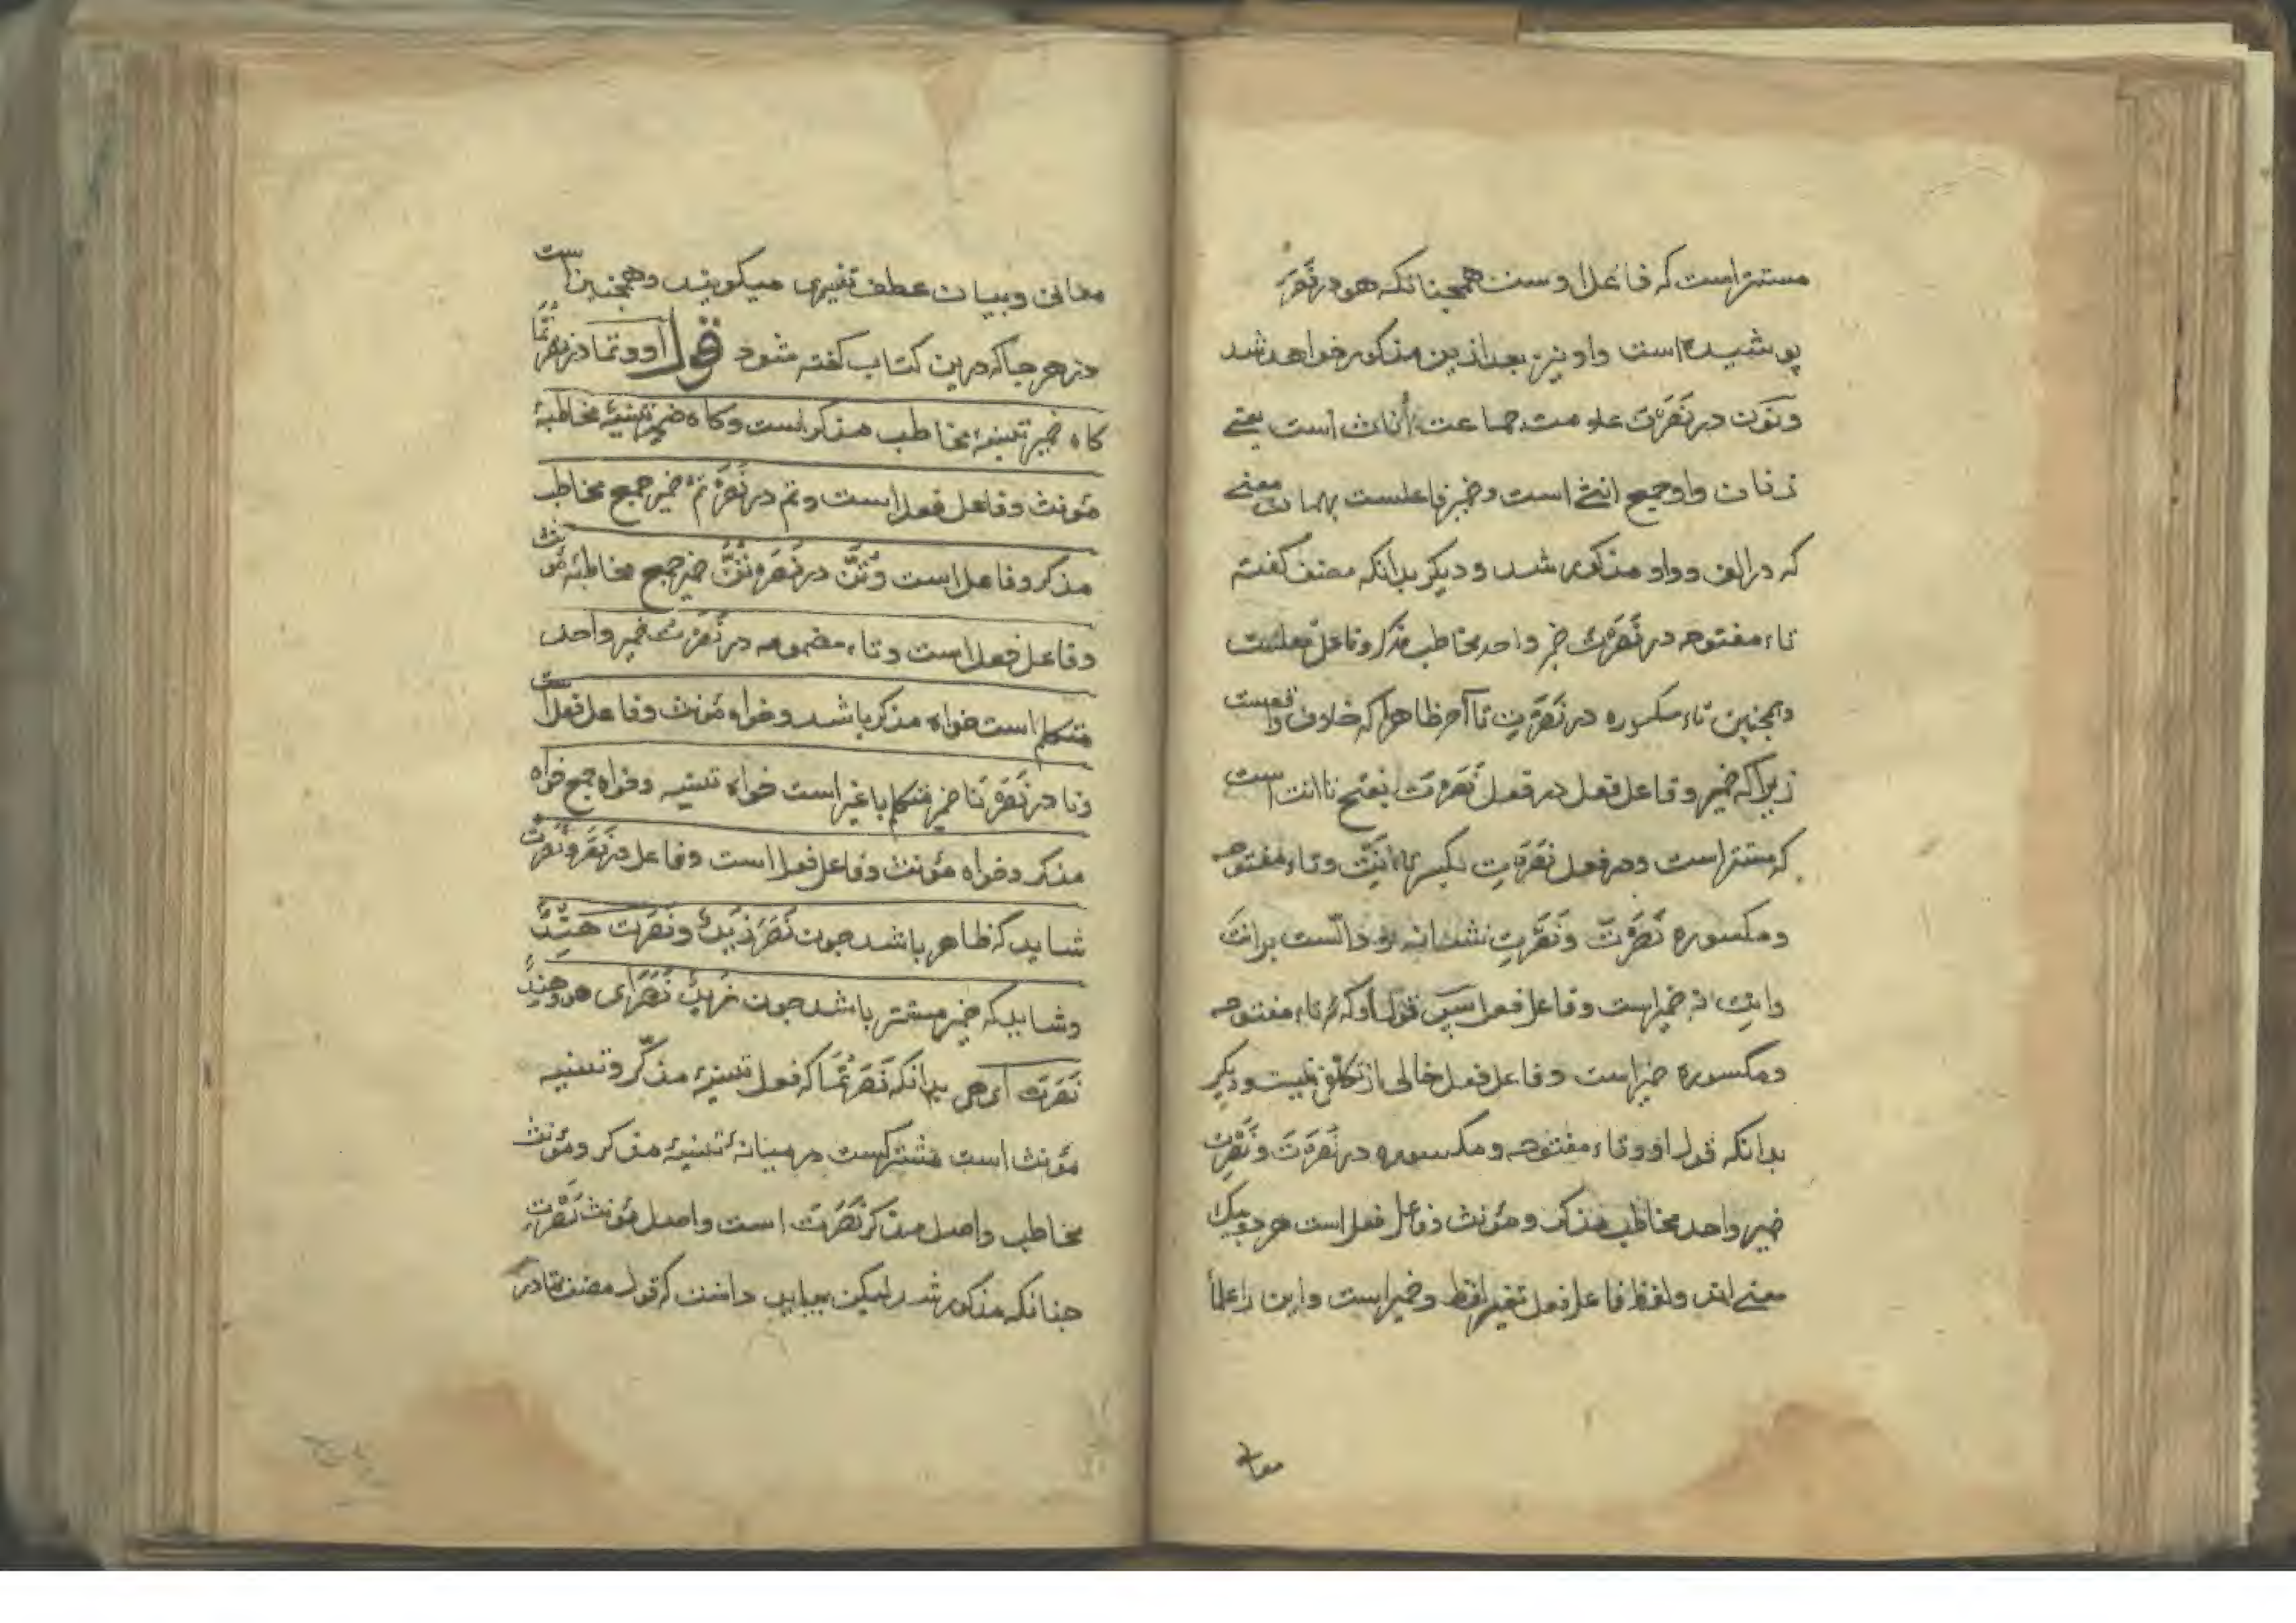 مستتر است که فاعل اوست همچنانکه هو در نَصَرَ
پوشیده است واو نیز بعد ازین مذکور خواهد شد
ونون در نَصَرْنَ علامت جماعت اُناث است یعنے
زنان واو جمع انثے است وضمیر فاعلست بهمان معنے
که در الف وواو مذکور شد ودیکر بدانکه مصنف کفته
تاء مفتوحه در نَصَرْتَ ضمیر واحد مخاطب مذکر وفاعل فعلست
وهمچنین تاء مکسوره در نَصَرْتِ تا آخر ظاهرا که خلاف واقعست
زیرا که ضمیر وفاعل فعل در فعل نَصَرْتَ بفتح تا انت است
که مستتر است ودر فعل نَصَرْتِ بکسر تا انتِ وتاء مفتوحه
ومکسوره نَصَرْتَ ونَصَرْتِ نشانه و دالست بر انتَ
وانتِ نه ضمیر است وفاعل فعل اسپس قول او که تاء مفتوحه
ومکسوره ضمیر است وفاعل فعل خالی از تکلفی نیست ودیکر
بدانکه قول او وتاء مفتوحه ومکسوره در نَصَرْتَ ونَصَرْتِ
ضمیر واحد مخاطب مذکر ومؤنث وفاعل فعل است هر دو بیک
معنے اند ولفظ فاعل فعل تفسیر لفظ وضمیر است واین را علماء
معانی
معانی وبیان عطف تفسیری میکویند وهمچنین است
در هر جا که درین کتاب کفته شود قول او وتما در نَصَرْتُمَا
کاه ضمیر تثنیهٔ مخاطب مذکر است وکاه ضمیر تثنیهٔ مخاطبهٔ
مؤنث وفاعل فعل است وتم در نَصَرْتُمْ ضمیر جمع مخاطب
مذکر وفاعل است وتُنَّ در نَصَرْتُنَّ ضمیر جمع مخاطبهٔ مؤنث
وفاعل فعل است وتاء مضمومه در نَصَرْتُ ضمیر واحد
متکلم است خواه مذکر باشد وخواه مؤنث وفاعل فعل است
ونا در نَصَرْنَا ضمیر متکلم با غیر است خواه تثنیه وخواه جمع خواه
مذکر وخواه مؤنث وفاعل فعل است وفاعل در نَصَرَ ونَصَرَتْ
شاید که ظاهر باشد چون نَصَرَ زَیْدٌ ونَصَرَتْ هِنْدٌ
وشاید که ضمیر مستتر باشد چون زَیْدٌ نَصَرَ ای هو وهِنْدٌ
نَصَرَتْ ای هی بدانکه نَصَرْتُمَا که فعل تثنیهٔ مذکّر وتثنیه
مؤنث است مشترکست در میانهٔ تثنیهٔ مذکر ومؤنث
مخاطب واصل مذکر نَصَرْتَ است واصل مؤنث نَصَرْتِ
چنانکه مذکور شد لیکن بباید دانست که قول مصنف تما در